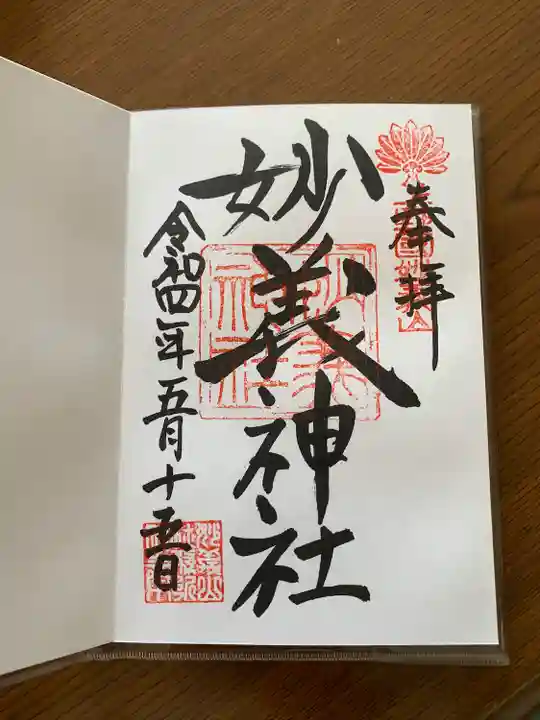 奉拝
妙義神社
令和四年五月十五日